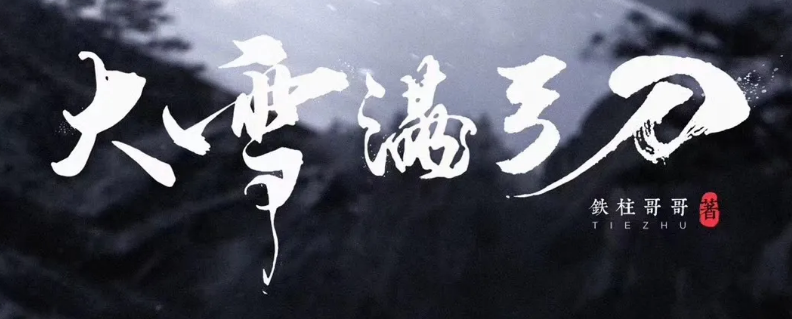 大雪满弓刀
鉄柱哥哥 著
TIEZHU